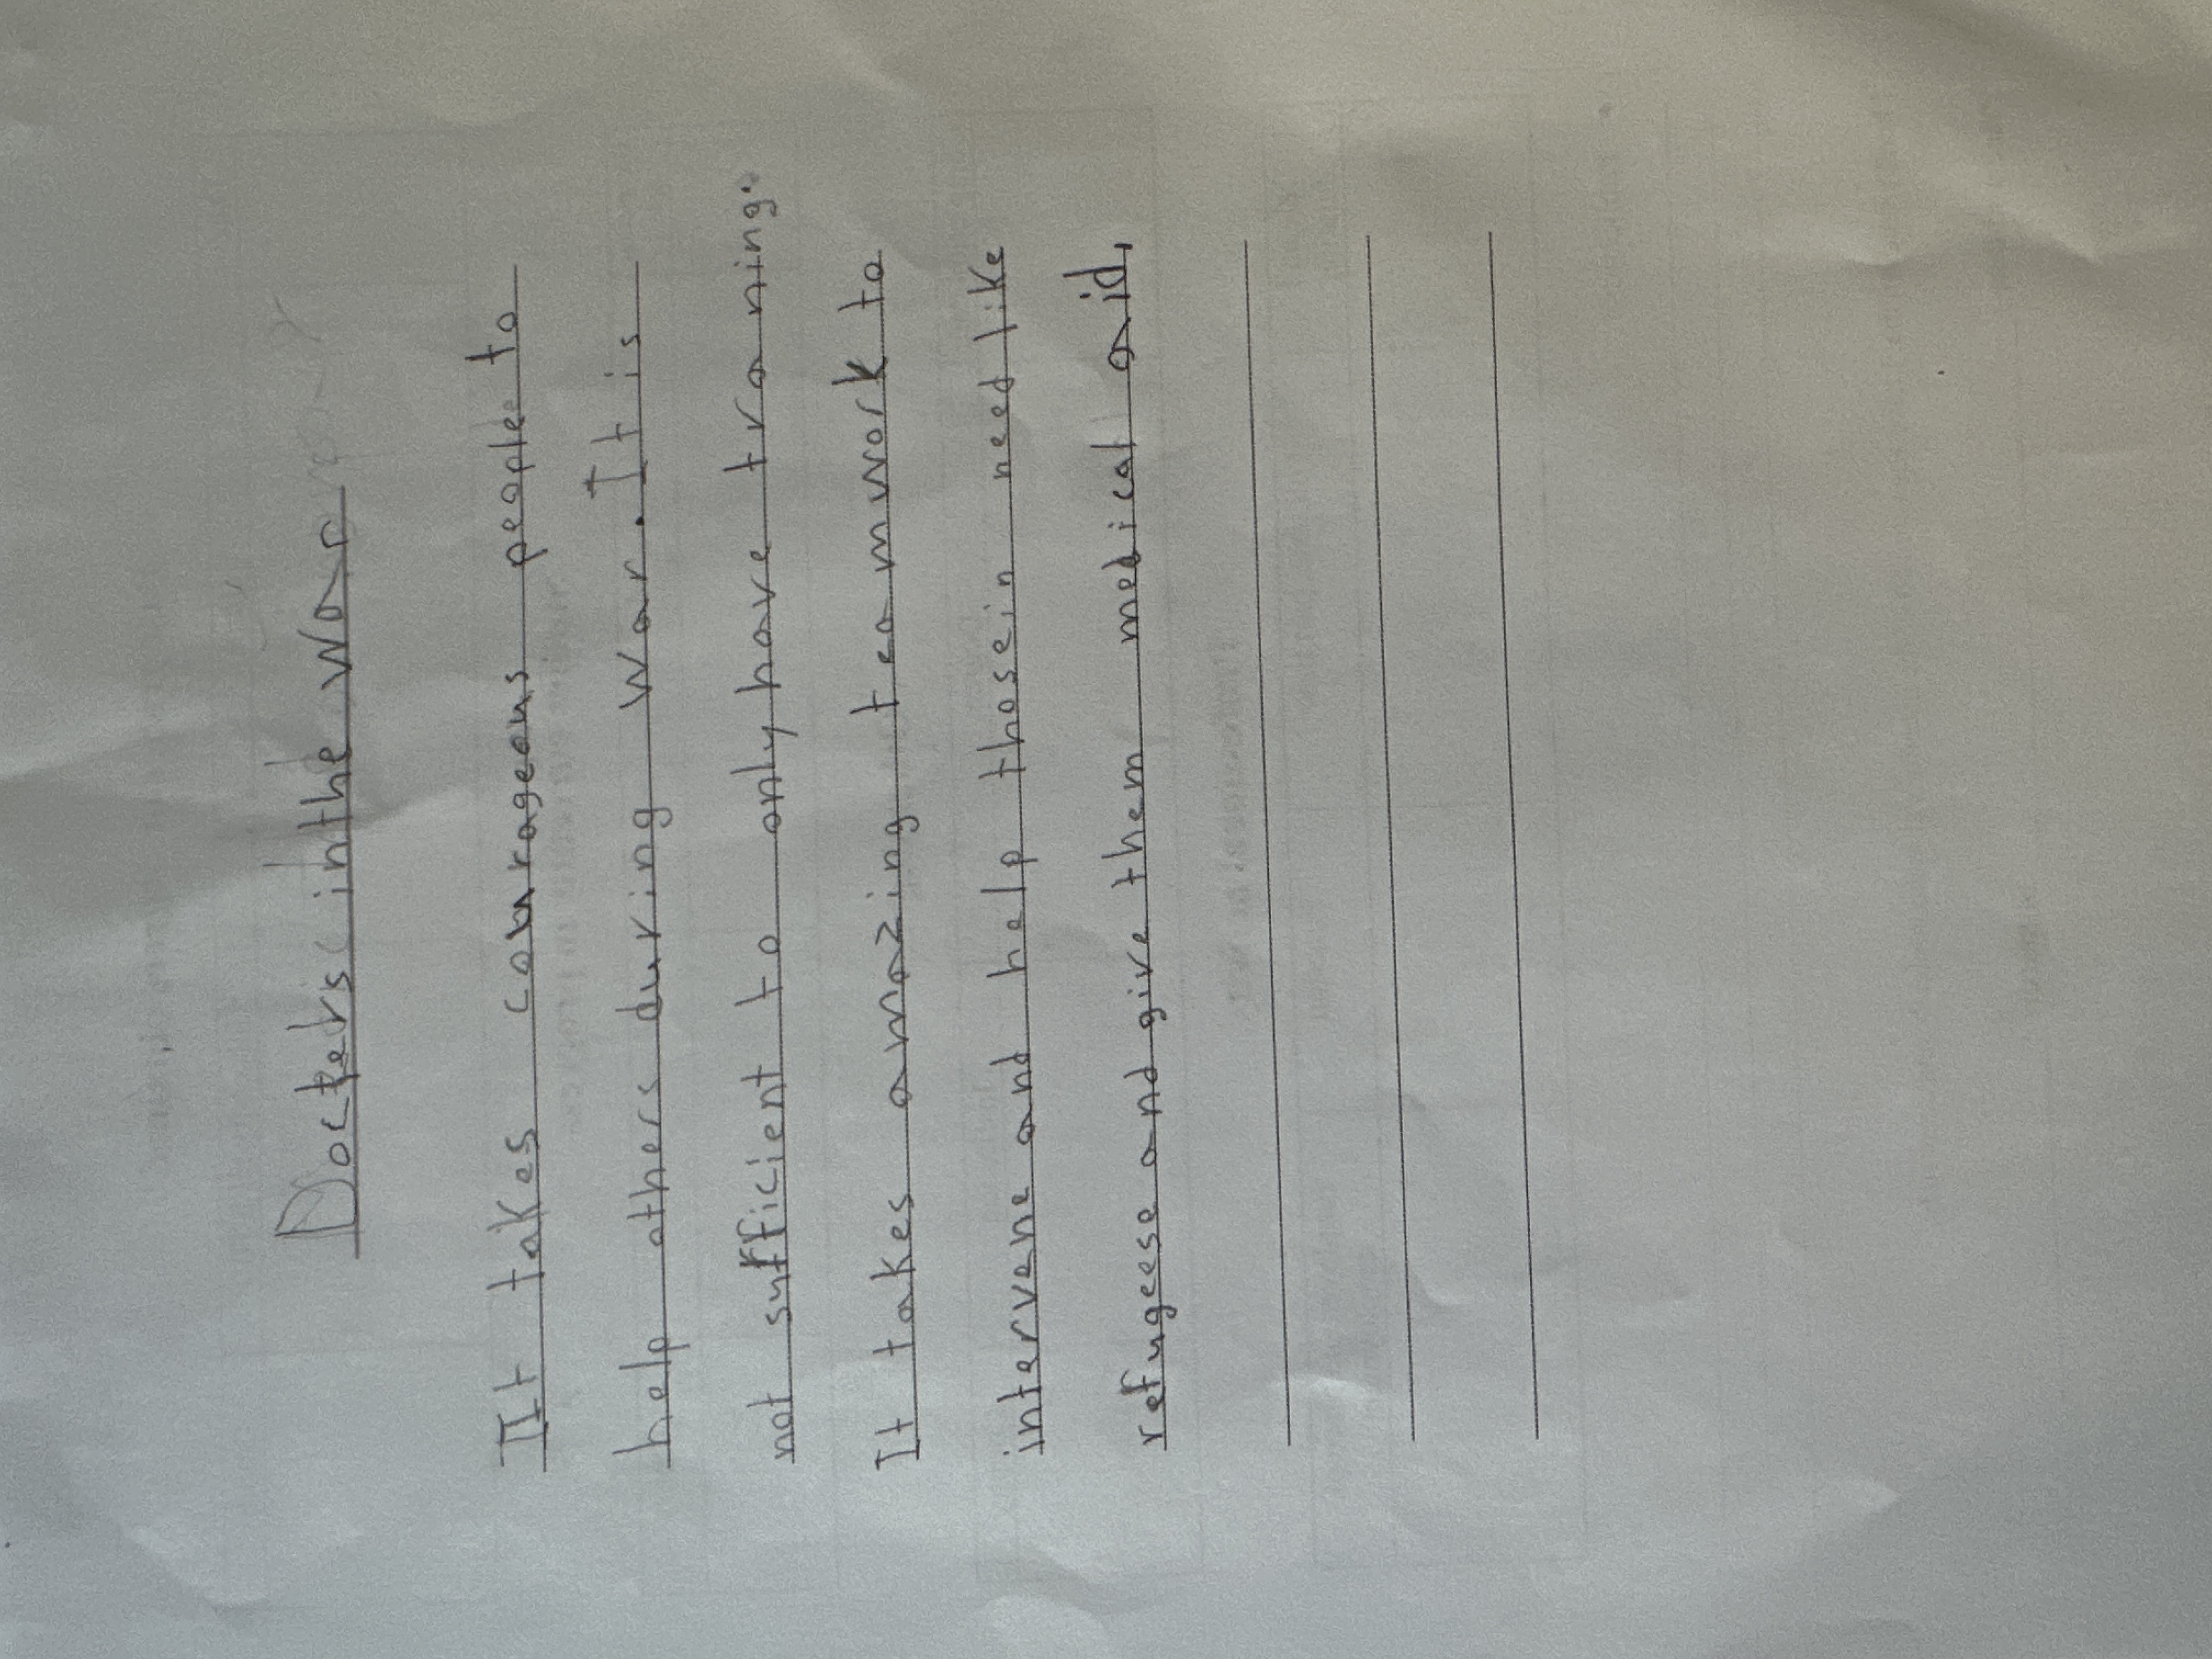 Docters in the War
It takes courageous people to
help others during war. It is
not sufficient to only have traning.
It takes amazing teamwork to
intervene and help those in need like
refugeese and give them medical aid,